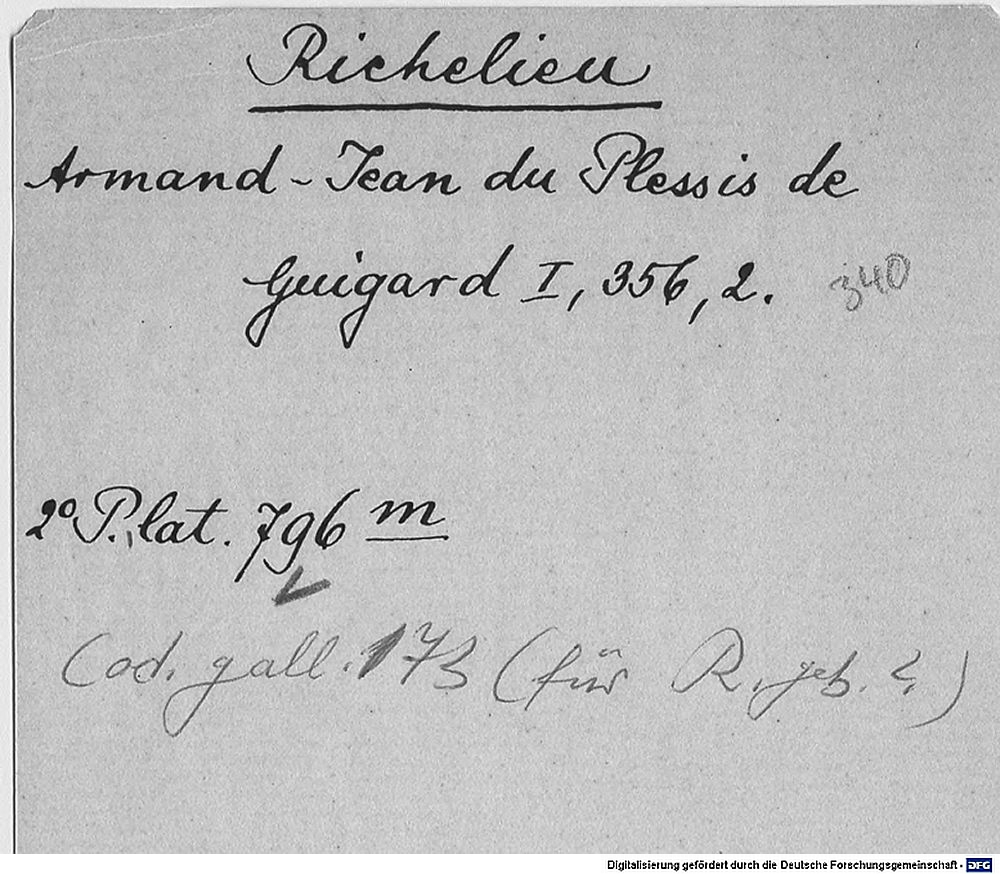 Richelieu
Armand-Jean du Plessis de
Guigard I, 356, 2. 340
2° P. lat. 796 m
Cod. gall. 173 (für R. geb. ?)
Digitalisierung gefördert durch die Deutsche Forschungsgemeinschaft - DFG